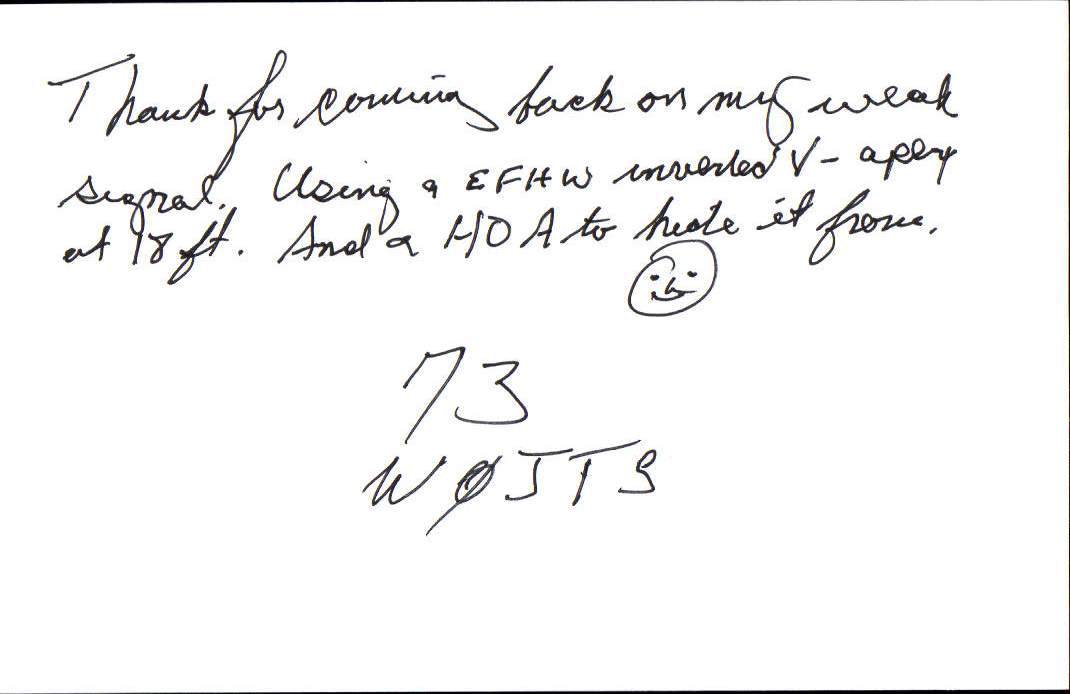 Thank for coming back on my weak
signal. Using a EFHW inverted V - apex
at 18 ft. And a HOA to hide it from.
73
WØJTS